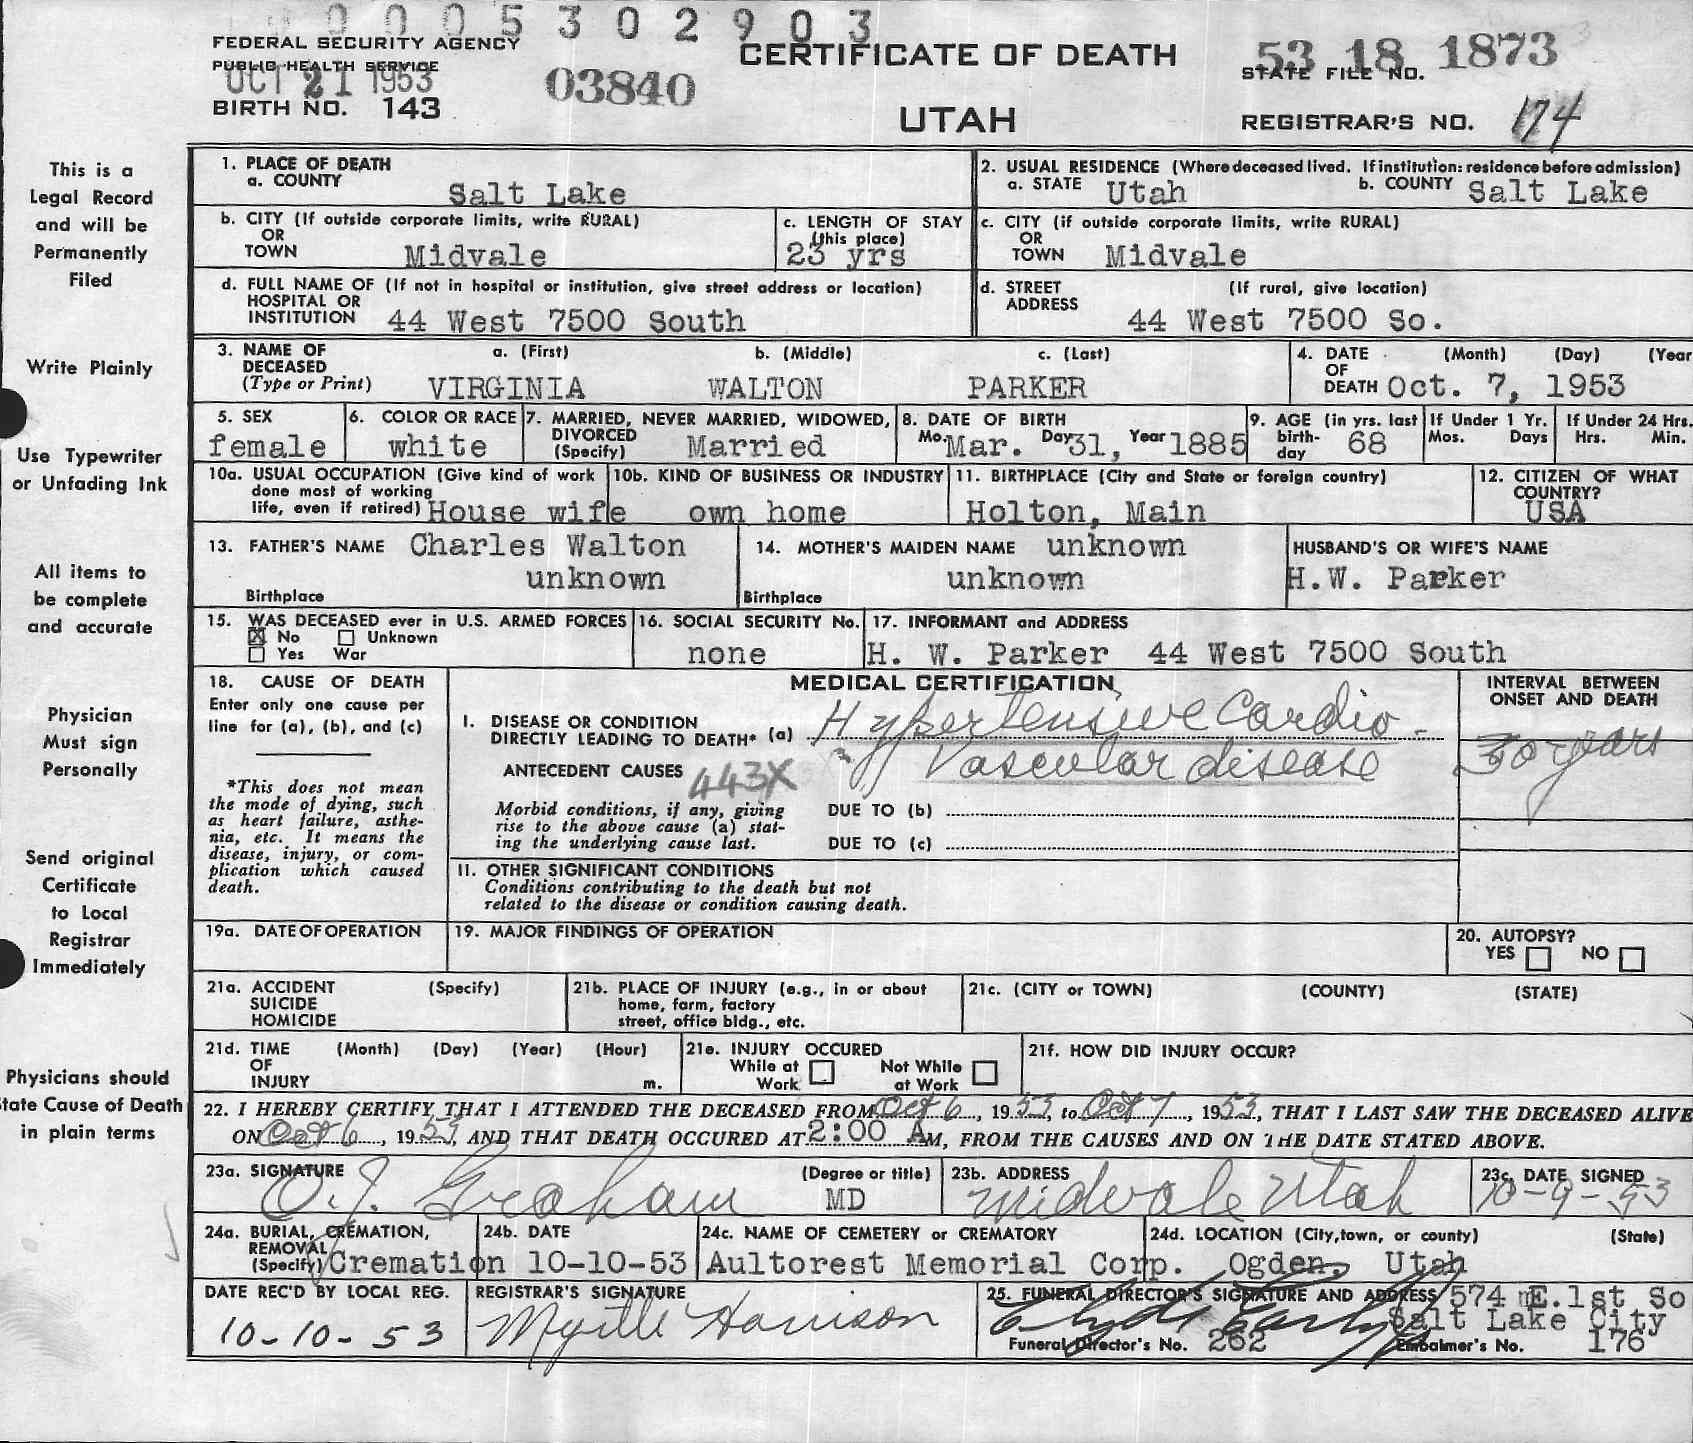 0005302903
FEDERAL SECURITY AGENCY
PUBLIC HEALTH SERVICE
OCT 21 1953
BIRTH NO. 143
03840
CERTIFICATE OF DEATH
UTAH
53 18 1873
STATE FILE NO.
REGISTRAR'S NO. 174
This is a
Legal Record
and will be
Permanently
Filed
Write Plainly
Use Typewriter
or Unfading Ink
All items to
be complete
and accurate
Physician
Must sign
Personally
Send original
Certificate
to Local
Registrar
Immediately
Physicians should
tate Cause of Death
in plain terms
1. PLACE OF DEATH
a. COUNTY Salt Lake
2. USUAL RESIDENCE (Where deceased lived. If institution: residence before admission)
a. STATE Utah b. COUNTY Salt Lake
b. CITY (If outside corporate limits, write RURAL)
OR
TOWN Midvale
c. LENGTH OF STAY
(this place)
23 yrs
c. CITY (if outside corporate limits, write RURAL)
OR
TOWN Midvale
d. FULL NAME OF (If not in hospital or institution, give street address or location)
HOSPITAL OR
INSTITUTION 44 West 7500 South
d. STREET (If rural, give location)
ADDRESS 44 West 7500 So.
3. NAME OF a. (First) b. (Middle) c. (Last)
DECEASED
(Type or Print) VIRGINIA WALTON PARKER
4. DATE (Month) (Day) (Year
OF
DEATH Oct. 7, 1953
5. SEX
female
6. COLOR OR RACE
white
7. MARRIED, NEVER MARRIED, WIDOWED,
DIVORCED
(Specify) Married
8. DATE OF BIRTH
Mo. Mar. Day 31, Year 1885
9. AGE (in yrs. last
birth-
day 68
If Under 1 Yr.
Mos. Days
If Under 24 Hrs.
Hrs. Min.
10a. USUAL OCCUPATION (Give kind of work
done most of working
life, even if retired) House wife
10b. KIND OF BUSINESS OR INDUSTRY
own home
11. BIRTHPLACE (City and State or foreign country)
Holton, Main
12. CITIZEN OF WHAT
COUNTRY?
USA
13. FATHER'S NAME Charles Walton
unknown
Birthplace
14. MOTHER'S MAIDEN NAME unknown
unknown
Birthplace
HUSBAND'S OR WIFE'S NAME
H.W. Parker
15. WAS DECEASED ever in U.S. ARMED FORCES
X No Unknown
Yes War
16. SOCIAL SECURITY No.
none
17. INFORMANT and ADDRESS
H. W. Parker 44 West 7500 South
18. CAUSE OF DEATH
Enter only one cause per
line for (a), (b), and (c)
*This does not mean
the mode of dying, such
as heart failure, asthe-
nia, etc. It means the
disease, injury, or com-
plication which caused
death.
MEDICAL CERTIFICATION
I. DISEASE OR CONDITION
DIRECTLY LEADING TO DEATH* (a) Hypertensive Cardio-
Vascular disease
ANTECEDENT CAUSES 443X
Morbid conditions, if any, giving
rise to the above cause (a) stat-
ing the underlying cause last.
DUE TO (b)
DUE TO (c)
II. OTHER SIGNIFICANT CONDITIONS
Conditions contributing to the death but not
related to the disease or condition causing death.
INTERVAL BETWEEN
ONSET AND DEATH
30 years
19a. DATE OF OPERATION
19. MAJOR FINDINGS OF OPERATION
20. AUTOPSY?
YES NO
21a. ACCIDENT (Specify)
SUICIDE
HOMICIDE
21b. PLACE OF INJURY (e.g., in or about
home, farm, factory
street, office bldg., etc.
21c. (CITY or TOWN) (COUNTY) (STATE)
21d. TIME (Month) (Day) (Year) (Hour)
OF
INJURY m.
21e. INJURY OCCURED
While at Work
Not While at Work
21f. HOW DID INJURY OCCUR?
22. I HEREBY CERTIFY THAT I ATTENDED THE DECEASED FROM Oct 6, 1953, to Oct 7, 1953, THAT I LAST SAW THE DECEASED ALIVE
ON Oct 6, 1953, AND THAT DEATH OCCURED AT 2:00 AM, FROM THE CAUSES AND ON THE DATE STATED ABOVE.
23a. SIGNATURE (Degree or title)
O.J. Graham MD
23b. ADDRESS
Midvale Utah
23c. DATE SIGNED
10-9-53
24a. BURIAL, CREMATION,
REMOVAL
(Specify) Cremation
24b. DATE
10-10-53
24c. NAME OF CEMETERY or CREMATORY
Aultorest Memorial Corp.
24d. LOCATION (City, town, or county) (State)
Ogden, Utah
DATE REC'D BY LOCAL REG.
10-10-53
REGISTRAR'S SIGNATURE
Myrtle Harrison
25. FUNERAL DIRECTOR'S SIGNATURE AND ADDRESS 574 E. 1st So
Salt Lake City
Funeral Director's No. 262 Embalmer's No. 176